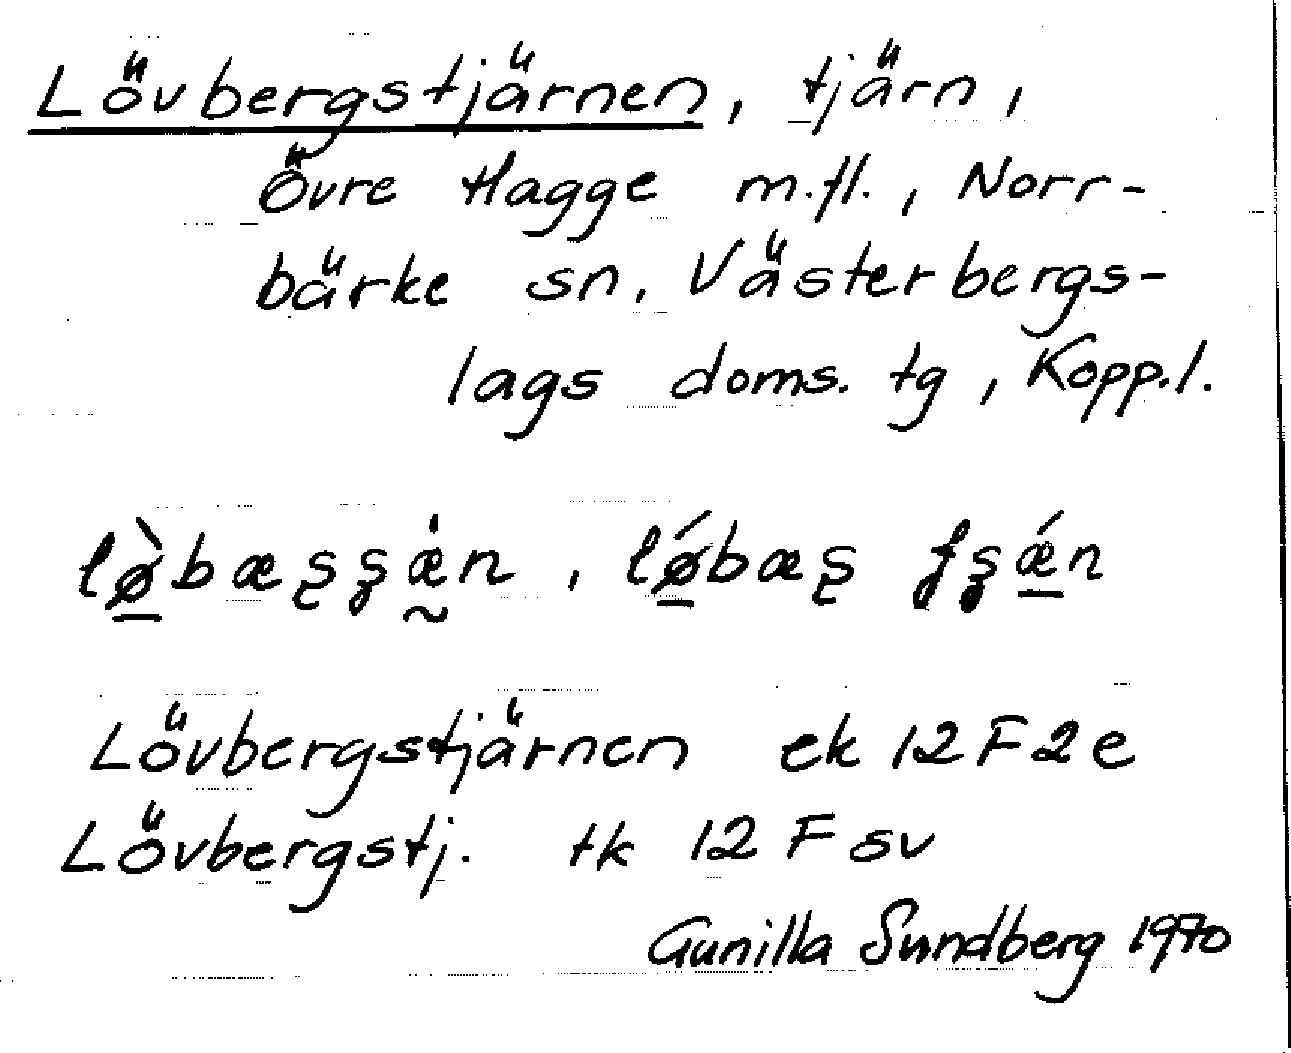 Lövbergstjärnen, tjärn,
Övre Hagge m.fl., Norr-
bärke sn, Västerbergs-
lags doms. tg, Kopp.l.
Lövbergstjärnen ek 12F2e
Lövbergstj. tk 12 F sv
Gunilla Sundberg 1970